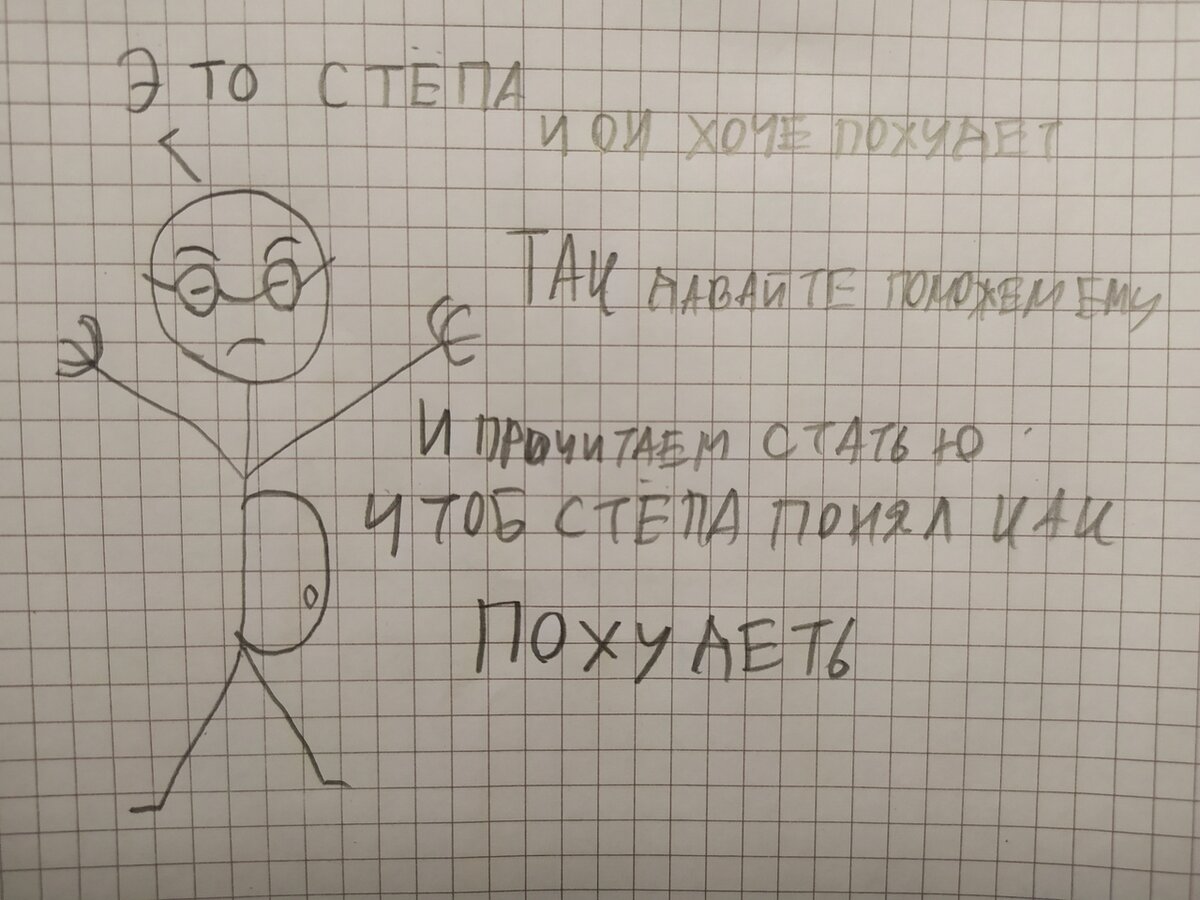 ЭТО СТЁПА
И ОН ХОЧЕ ПОХУДЕТ
ТАК ДАВАЙТЕ ПОМОЖЕМ ЕМУ
И ПРОЧИТАЕМ СТАТЬЮ
ЧТОБ СТЁПА ПОНЯЛ КАК
ПОХУДЕТЬ